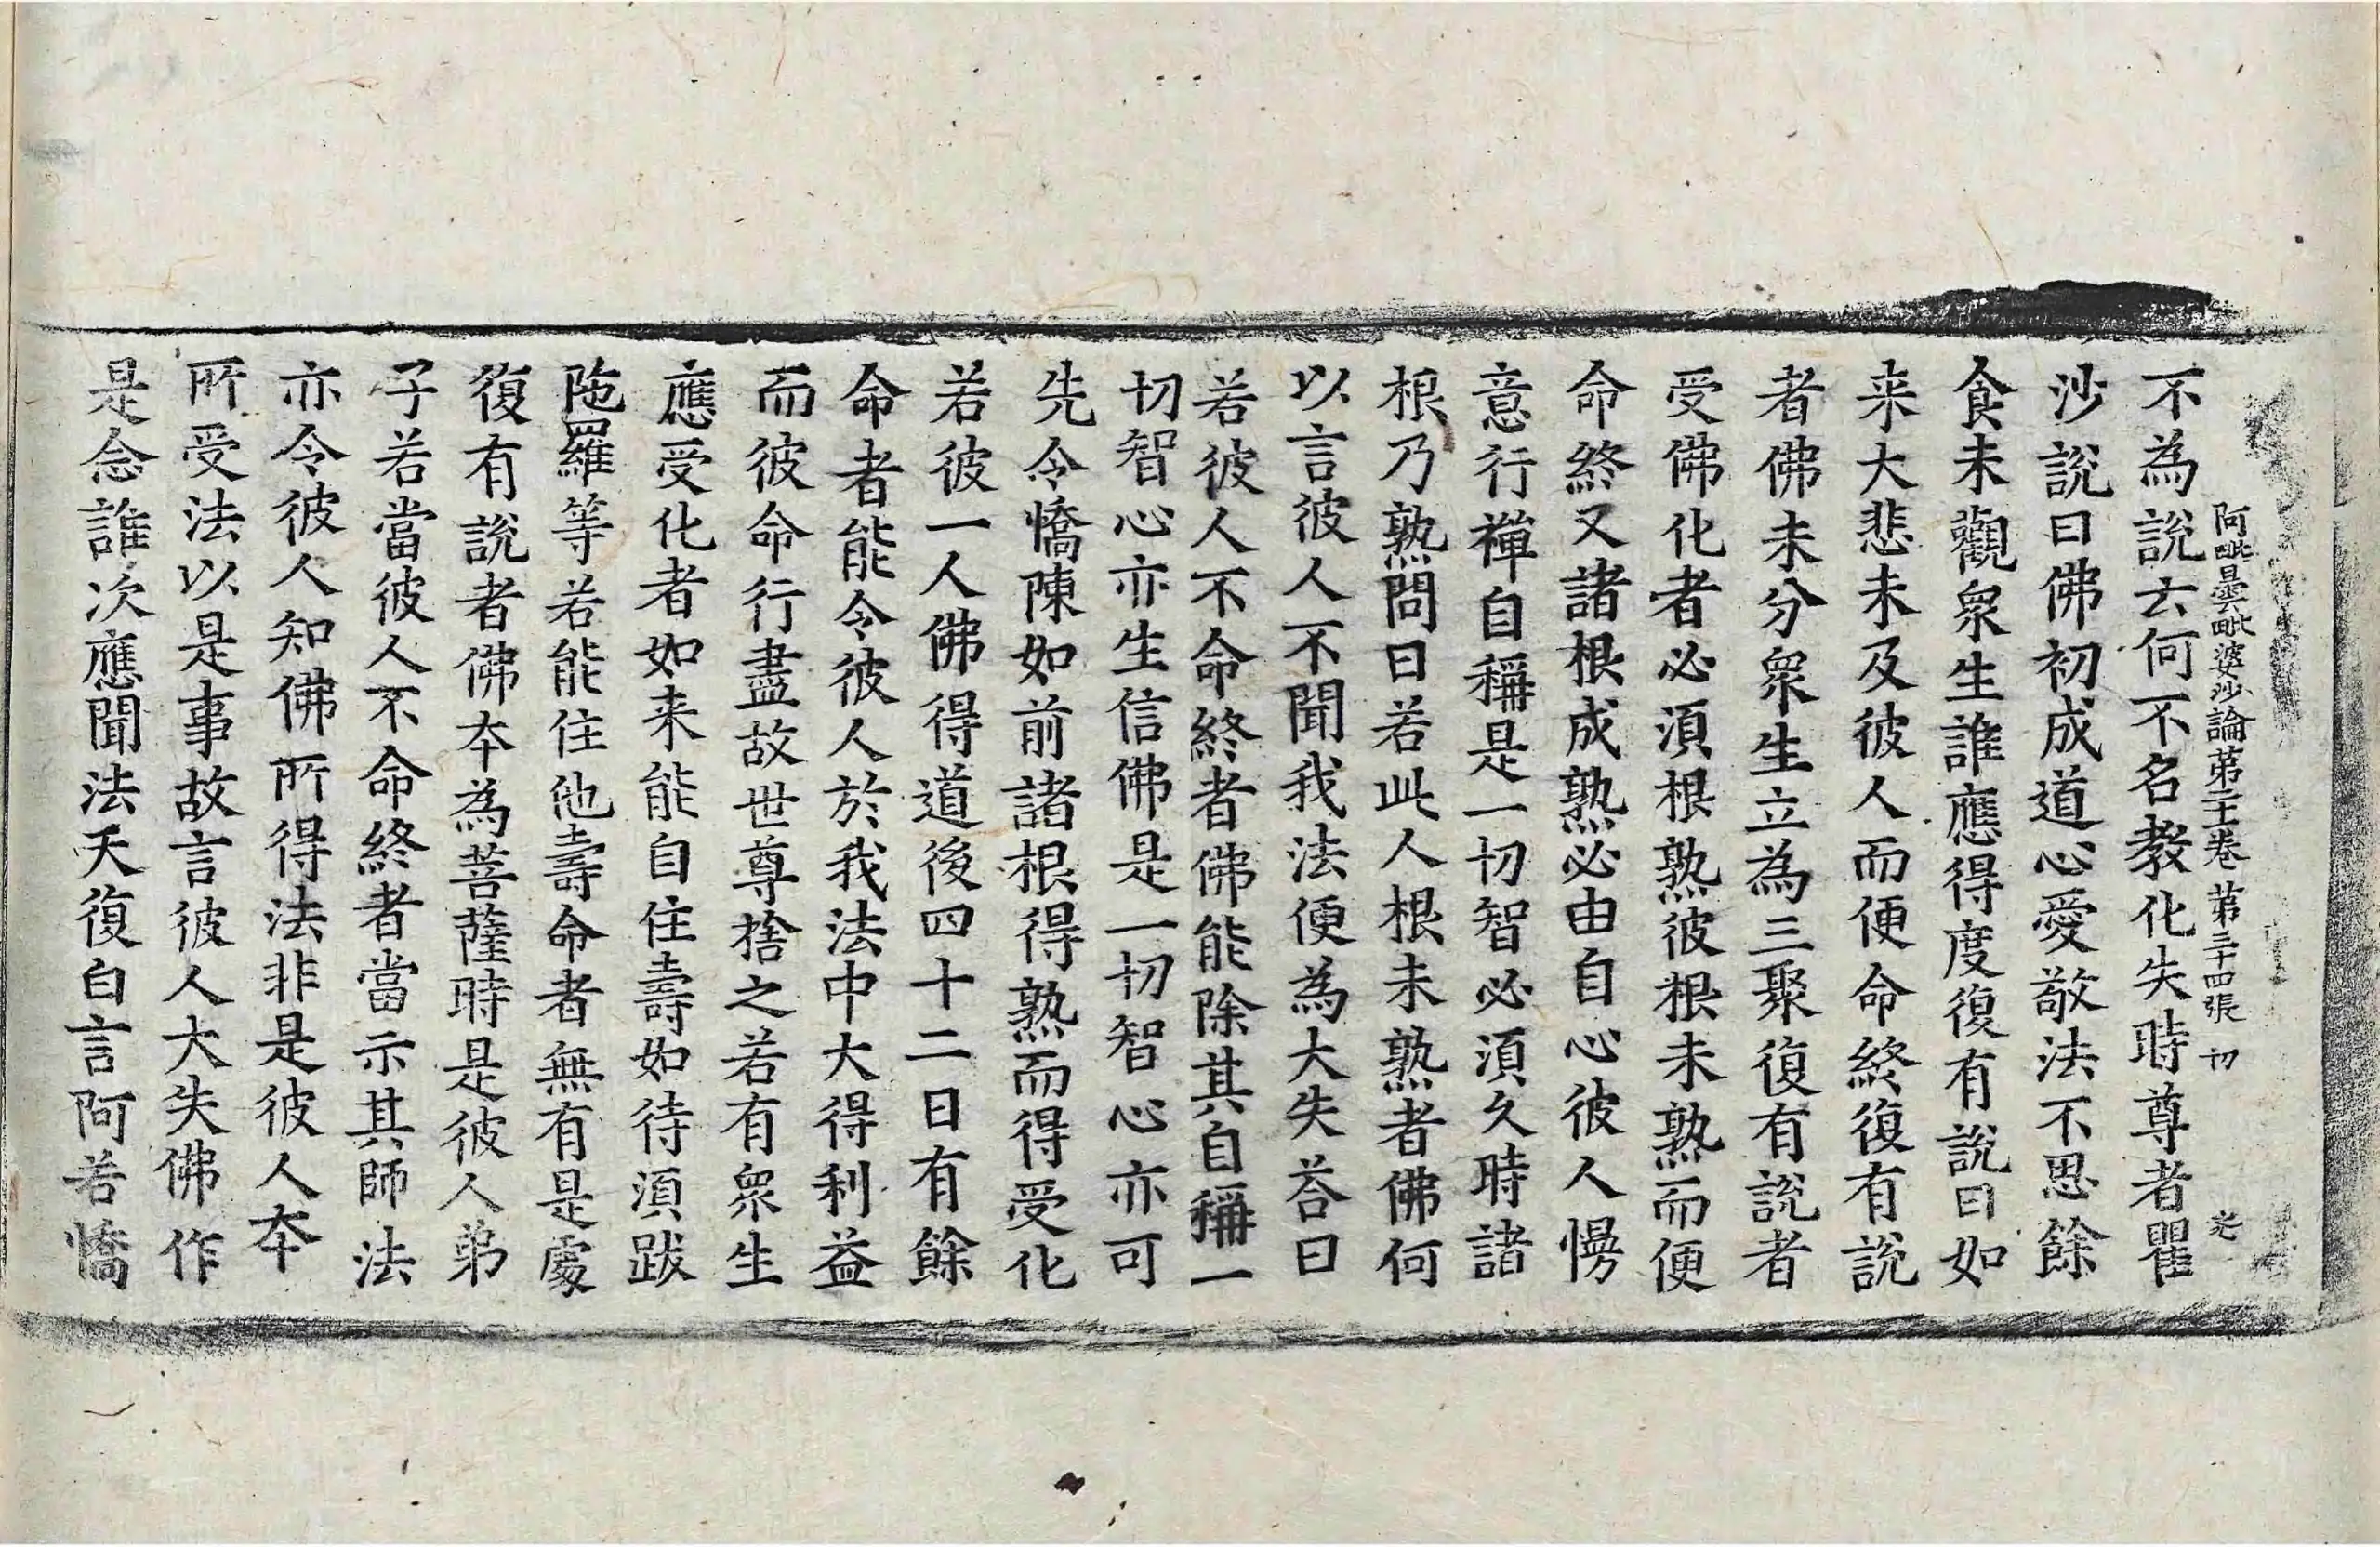 阿毗曇毗婆沙論第二十卷 第三十四張 切
不為說去何不名教化失時尊者瞿
沙說曰佛初成道心愛敬法不思餘
食未觀衆生誰應得度復有說曰如
来大悲未及彼人而便命終復有說
者佛未分衆生立為三聚復有說者
受佛化者必湏根熟彼根未熟而便
命終又諸根成熟必由自心彼人慢
意行禪自稱是一切智必湏久時諸
根乃熟問曰若此人根未熟者佛何
以言彼人不聞我法便為大失荅曰
若彼人不命終者佛能除其自稱一
切智心亦生信佛是一切智心亦可
先令憍陳如前諸根得熟而得受化
若彼一人佛得道後四十二日有餘
命者能令彼人於我法中大得利益
而彼命行盡故世尊捨之若有衆生
應受化者如来能自住壽如待湏跋
陁羅等若能住他壽命者無有是處
復有說者佛夲為菩薩時是彼人弟
子若當彼人不命終者當示其師法
亦令彼人知佛所得法非是彼人夲
所受法以是事故言彼人大失佛作
是念誰次應聞法天復白言阿若憍